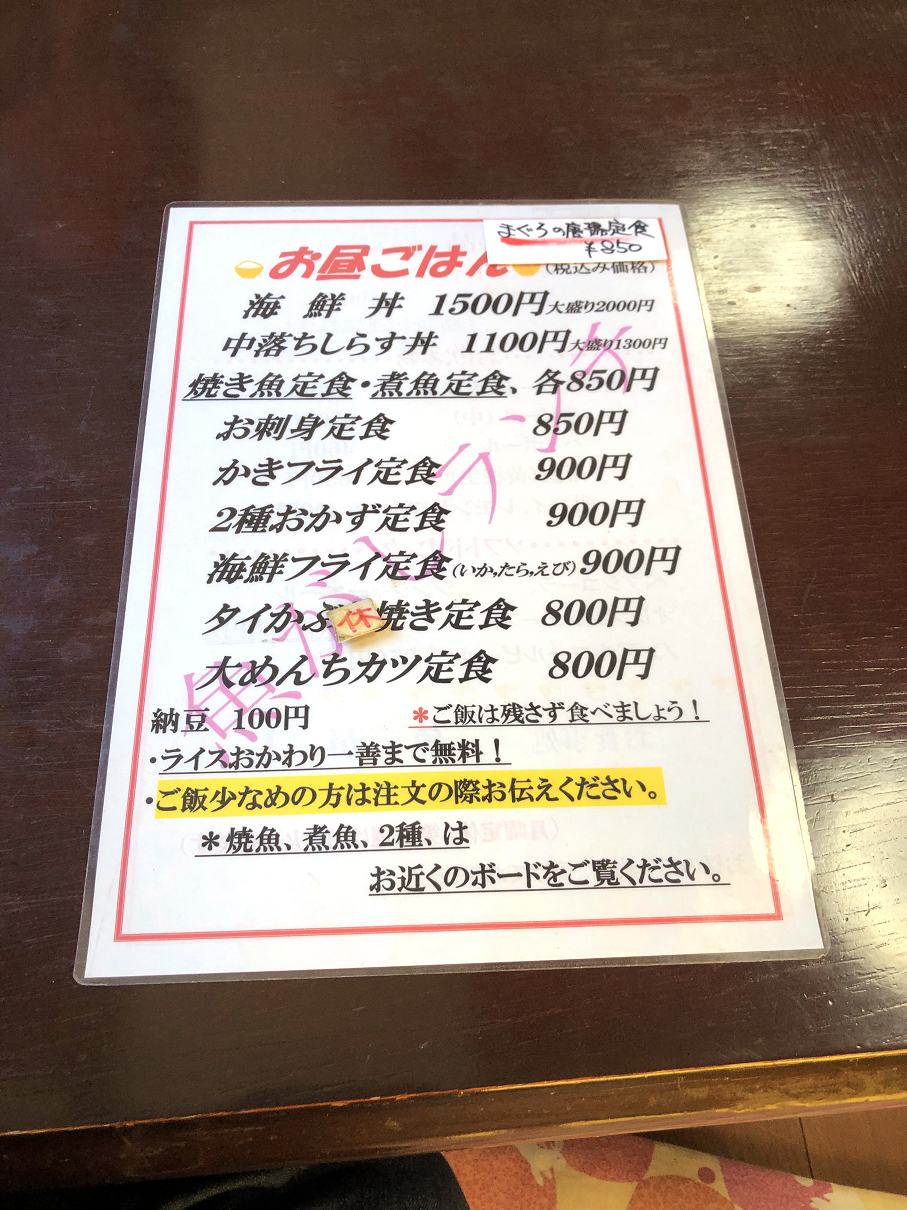 まぐろの唐揚定食
¥850
お昼ごはん
(税込み価格)
海鮮丼 1500円大盛り2000円
中落ちしらす丼 1100円大盛り1300円
焼き魚定食・煮魚定食、各850円
お刺身定食 850円
かきフライ定食 900円
2種おかず定食 900円
海鮮フライ定食(いか,たら,えび)900円
タイかぶ休焼き定食 800円
大めんちカツ定食 800円
納豆 100円 *ご飯は残さず食べましょう!
・ライスおかわり一善まで無料!
・ご飯少なめの方は注文の際お伝えください。
*焼魚、煮魚、2種、は
お近くのボードをご覧ください。